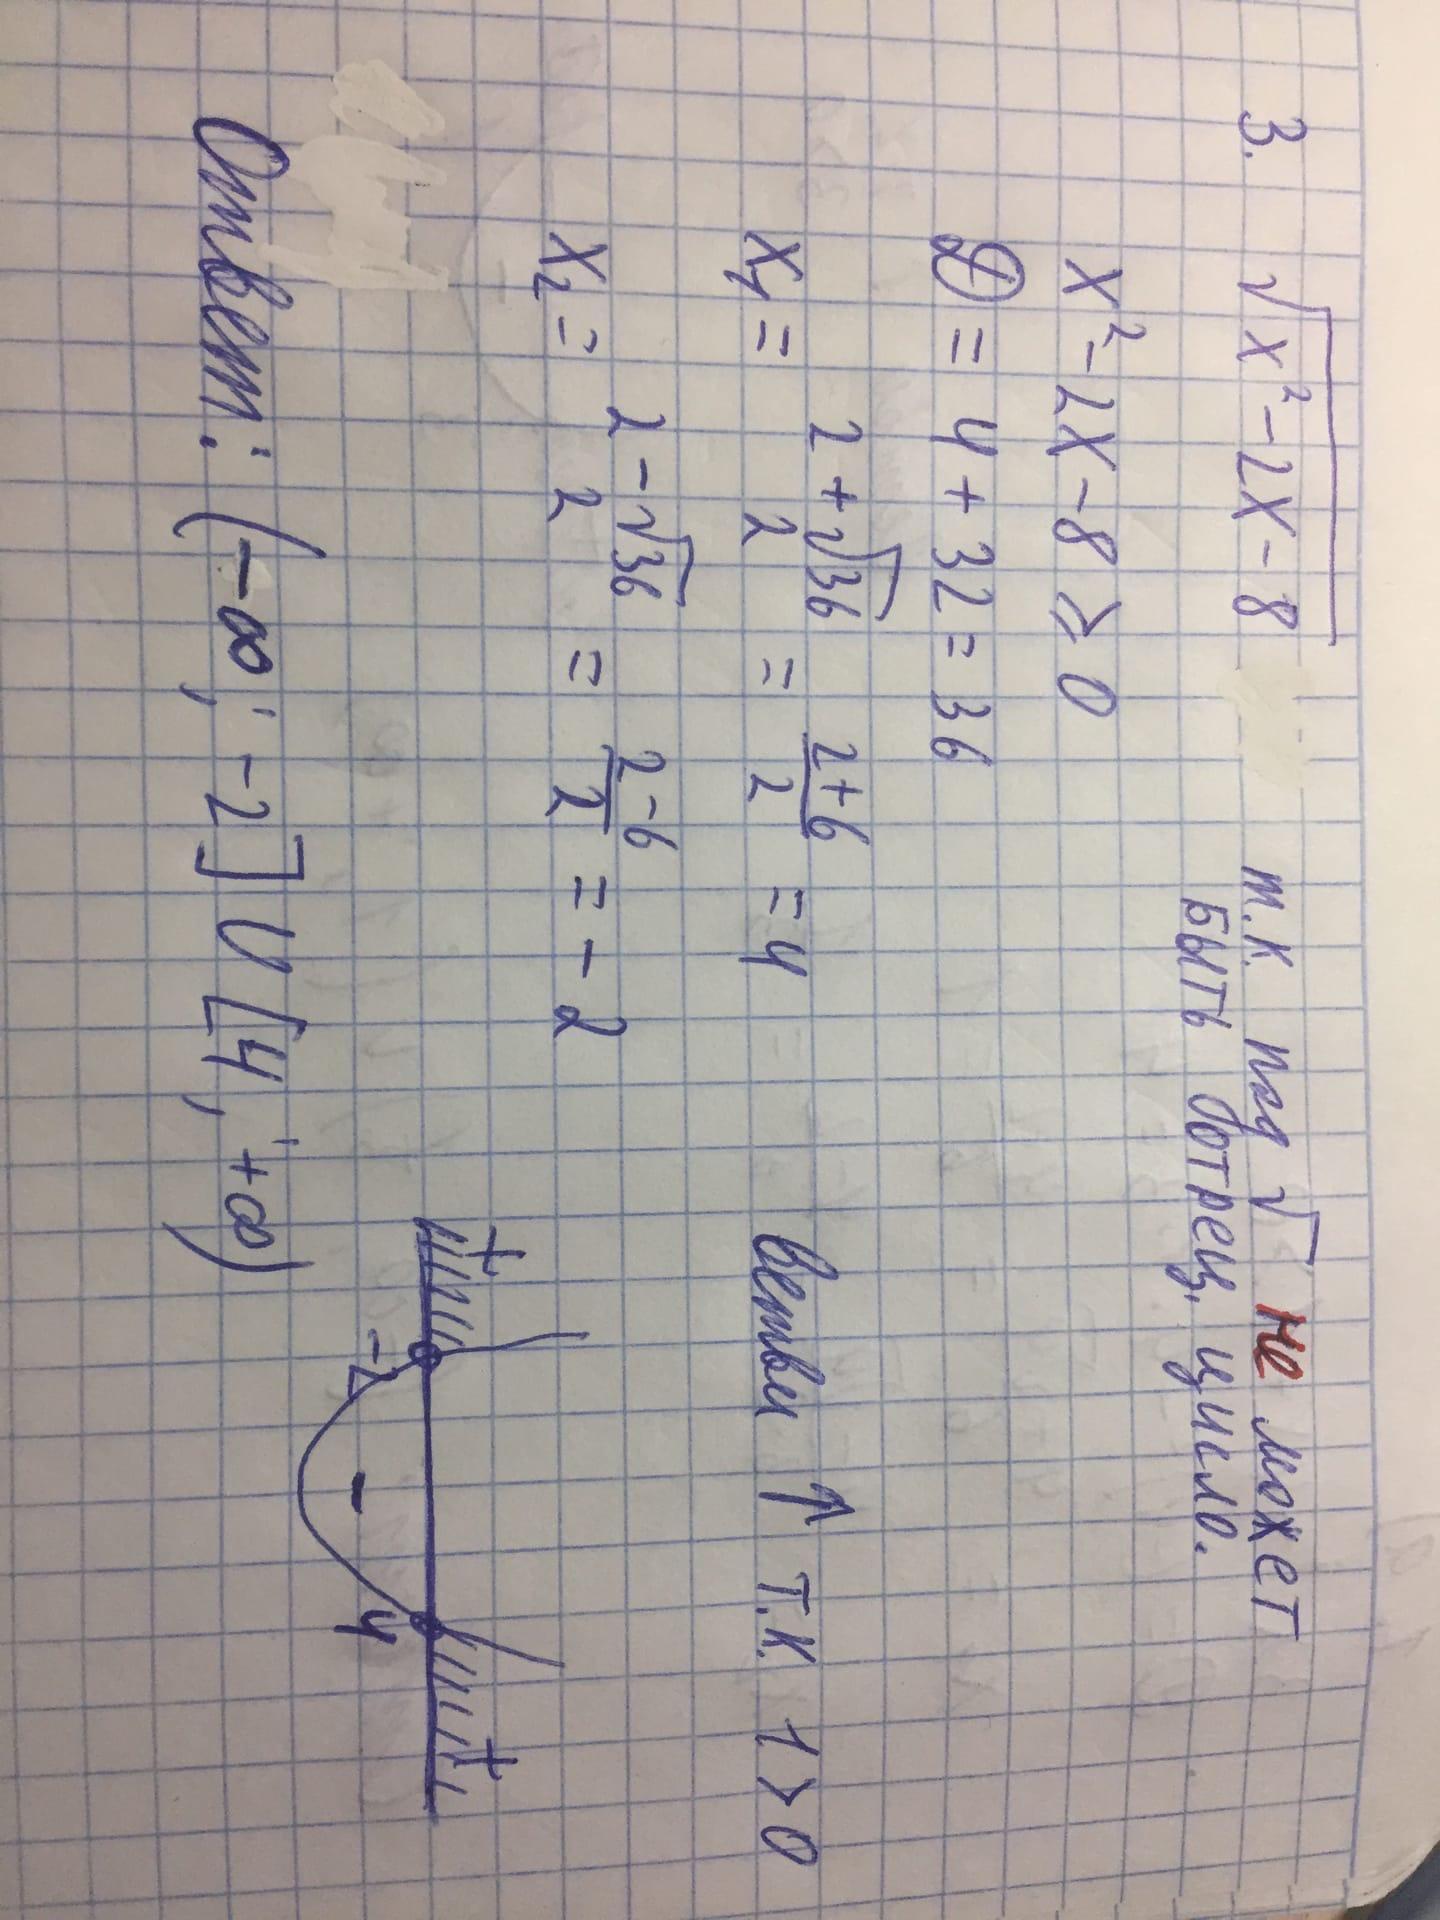 3. √x²-2x-8 т.к. под √ не может
быть отрец. число.
x²-2x-8 ⩾ 0
D = 4 + 32 = 36
x₁ = 2+√36 / 2 = 2+6 / 2 = 4 Ветви ↑ т.к. 1>0
x₂ = 2-√36 / 2 = 2-6 / 2 = -2
+ - +
-2 4
Ответ: (-∞; -2] U [4; +∞)